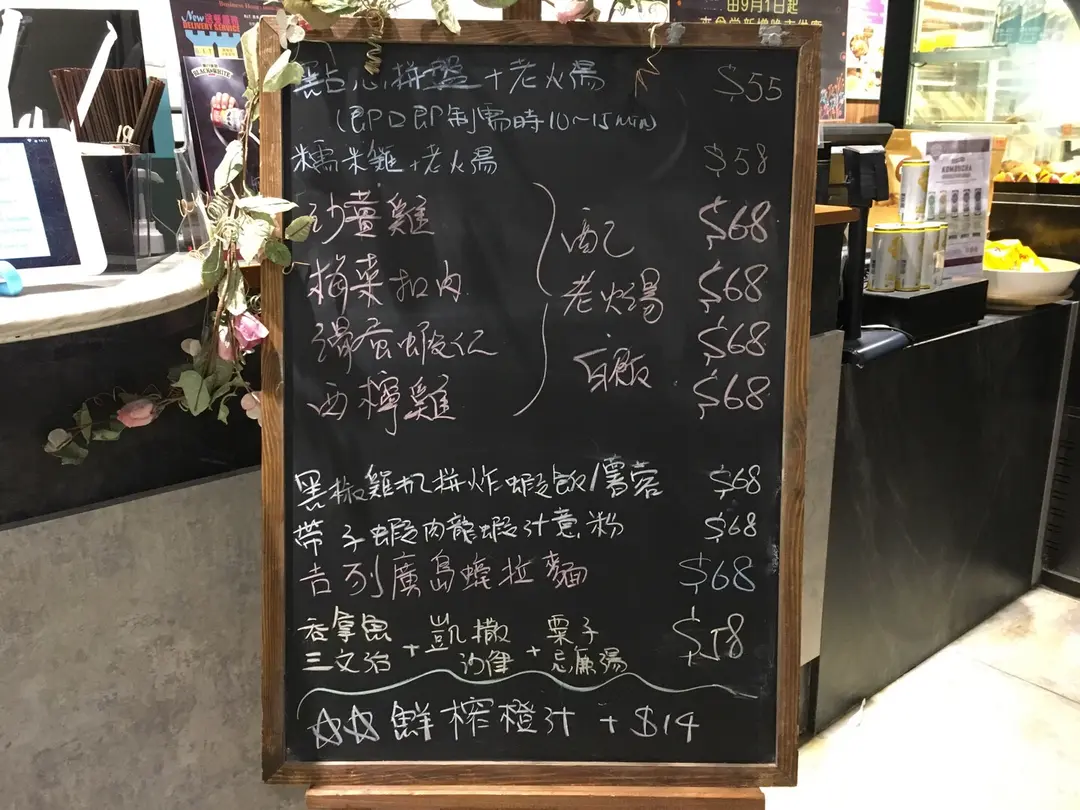 New 送餐服務
DELIVERY SERVICE
BLACK&WHITE
由9月1日起
KOMBUCHA
點心拼盤+老火湯 $55
(即叫即制需時10~15min)
糯米雞+老火湯 $58
沙薑雞 $68
梅菜扣肉 $68
滑蛋蝦仁 $68
西檸雞 $68
配
老火湯
白飯
黑椒雞扒拼炸蝦飯/薯蓉 $68
帶子蝦肉龍蝦汁意粉 $68
吉列廣島蠔拉麵 $68
吞拿魚三文治+凱撒沙律+栗子忌廉湯 $58
☆☆鮮榨橙汁+$14